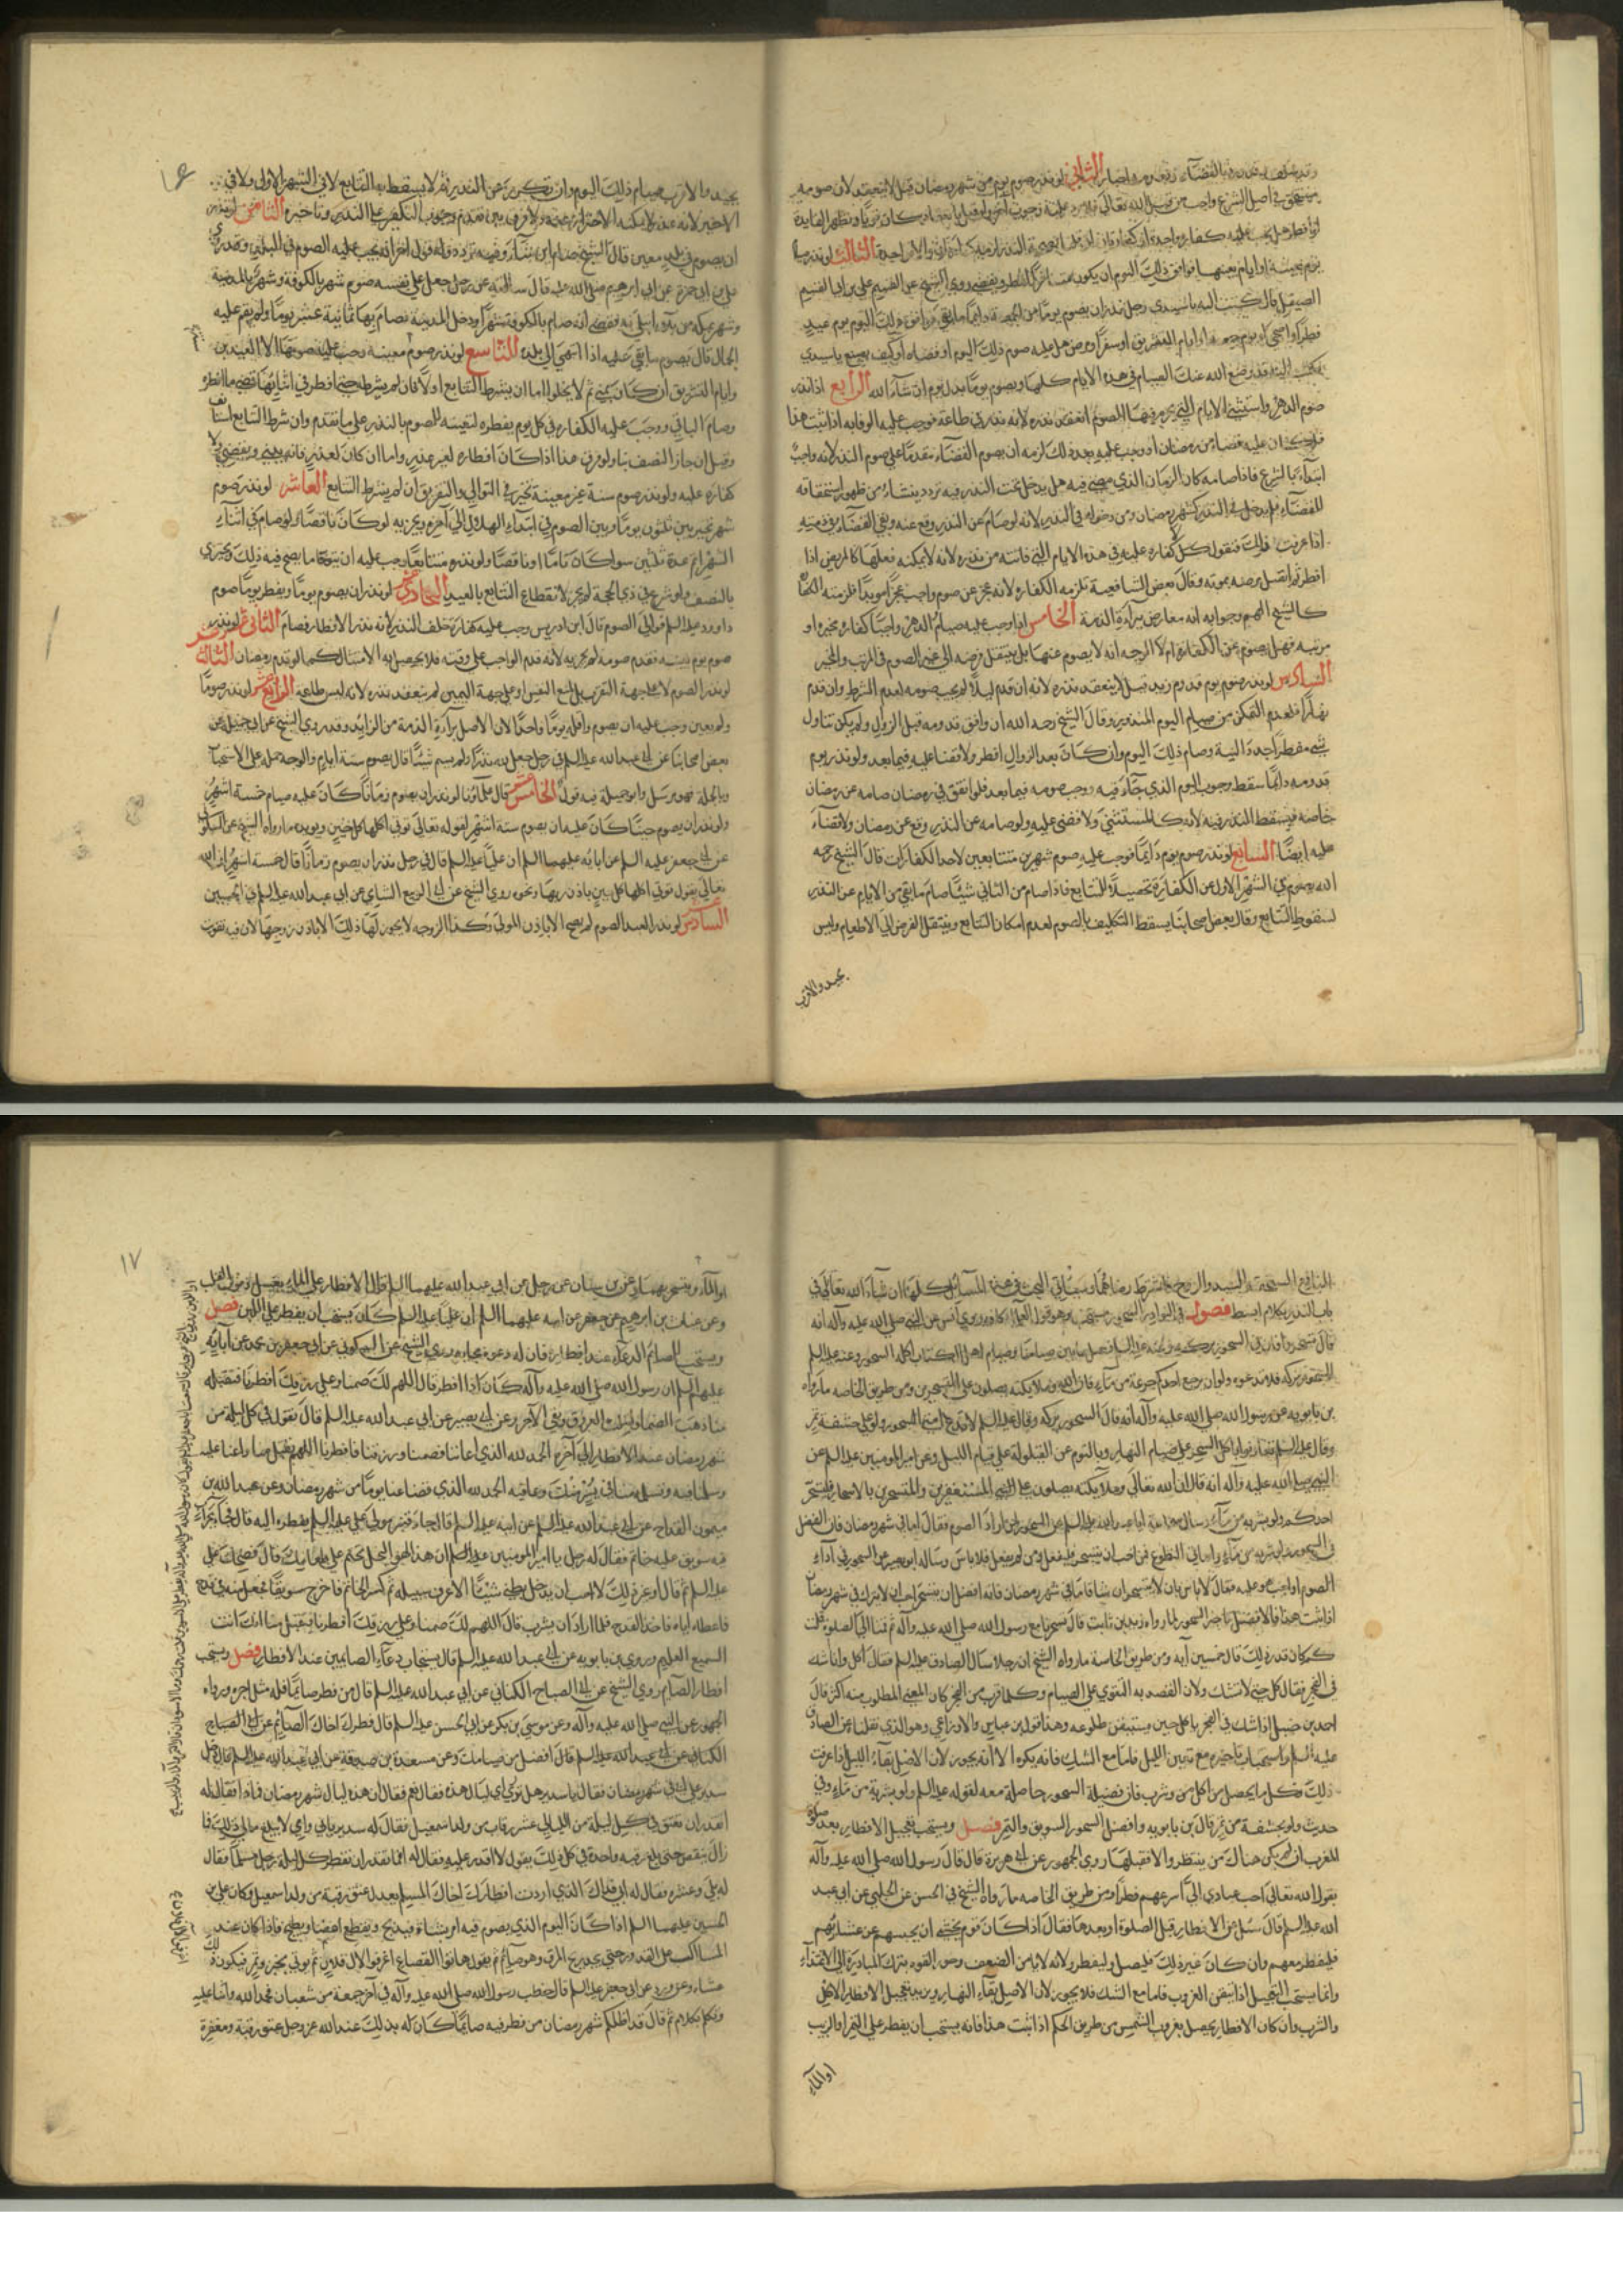 الثاني لو نذر صوم يوم من شهر رمضان قيل لا ينعقد لان صومه
مستحق في اصل الشرع واجب من قبل الله تعالى
الثالث لو نذر
يوم بعينه او ايام بعينها فوافق ذلك اليوم ان يكون
الصيقل قال كتبت اليه يا سيدي رجل نذر ان يصوم يوما من الجمعة دائما ما بقي فوافق ذلك اليوم يوم عيد
فطر او اضحى او يوم جمعة او ايام التشريق او سفر او مرض هل عليه صوم ذلك اليوم او قضاه او كيف يصنع يا سيدي
فكتب اليه قد وضع الله عنك الصيام في هذه الايام كلها ويصوم يوما بدل يوم ان شاء الله الرابع اذا نذر
صوم الدهر واستثنى الايام التي يحرم فيها الصوم انعقد نذره لانه نذر في طاعة فوجب عليه الوفا به اذا ثبت هذا
فلو كان عليه قضاء من رمضان او وجب عليه بعد ذلك لزمه ان يصوم القضاء مقدما على صوم النذر لانه واجب
ابتداء بالشرع فاذا صامه كان الزمان الذي مضى فيه هل يدخل تحت النذر فيه تردد ينشاء من ظهور استحقاقه
للقضاء فلم يدخل في النذر كشهر رمضان ومن دخوله في النذر لانه لو صام عن النذر وقع عنه وبقي القضاء في ذمته
اذا عرفت ذلك فنقول كل كفاره عليه في هذه الايام التي فاتته من نذره لانه لا يمكنه فعلها كالمريض اذا
افطر ثم اتصل مرضه بموته وقال بعض الشافعية تلزمه الكفاره لانه عجز عن صوم واجب عجزا موبدا فلزمته الكفارة
كالشيخ الهم وجوابه انه معارض ببراءة الذمة الخامس اذا وجب عليه صيام الدهر واجبا كفاره مخيره او
مرتبه فهل يصوم عن الكفاره ام لا الوجه انه لا يصوم عنها بل ينتقل فرضه الى غير الصوم في المرتب والمخير
السادس لو نذر صوم يوم قدوم زيد قيل لا ينعقد نذره لانه ان قدم ليلا لم يجب صومه لعدم الشرط وان قدم
نهارا فلعدم التمكن من صيام اليوم المنذور وقال الشيخ رحمه الله ان وافق قدومه قبل الزوال ولم يكن تناول
شي مفطرا جدد النية وصام ذلك اليوم وان كان بعد الزوال افطر ولا قضا عليه فيما بعد ولو نذر يوم
قدومه دائما سقط وجوب اليوم الذي جاء فيه ووجب صومه فيما بعد فلو اتفق في رمضان صامه عن رمضان
خاصة فيسقط النذر فيه لانه كالمستثنى ولا قضى عليه ولو صامه عن النذر وقع عن رمضان ولا قضاء
عليه ايضا السابع لو نذر صوم يوم دائما فوجب عليه صوم شهرين متتابعين لاحد الكفارات قال الشيخ رحمه
الله يصوم في الشهر الاول عن الكفارة تحصيلا للتتابع فاذا صام من الثاني شيئا صام ما بقي من الايام عن النذر
لسقوط التتابع وقال بعض اصحابنا يسقط التكليف بالصوم لعدم امكان التتابع وينتقل الفرض الى الاطعام وليس
بجيد والاقرب
١٦
بجيد والاقرب صيام ذلك اليوم وان تكرر عن النذر ثم لا يسقط به التتابع لا في الشهر الاول ولا في
الاخير لانه عذر لا يمكنه الاحتراز عنه ولا فرق بين تقدم وجوب التكفير على النذر وتاخيره الثامن لو نذر
ان يصوم في بلد معين قال الشيخ صام اين شاء وفيه تردد وله قول اخر انه يجب عليه الصوم في البلد
علي بن ابي حمزة عن ابي ابرهيم صلى الله عليه قال سالته عن رجل جعل على نفسه صوم شهر بالكوفة وشهر بالمدينة
وشهر بمكة من بلاء ابتلي به فقضى انه صام بالكوفة شهرا ودخل المدينة فصام بها ثمانية عشر يوما ولم يقم عليه
الجمال قال يصوم ما بقي عليه اذا انتهى الى بلده التاسع لو نذر صوم سنة معينة وجب عليه صومها الا العيدين
وايام التشريق ان كان بمنى ثم لا يخلو اما ان يشترط التتابع اولا فان لم يشترط حتى افطر في اثنائها قضى ما افطر
وصام الباقي ووجب عليه الكفاره في كل يوم يفطره لتعينه للصوم بالنذر على ما تقدم وان شرط التتابع استانف
وقيل ان جاز النصف بنا ولو فرق هذا اذا كان افطاره لغير عذر واما ان كان لعذر فانه يبني ويقضي ولا
كفاره عليه ولو نذر صوم سنة غير معينة تخير في التوالي والتفريق ان لم يشترط التتابع العاشر لو نذر صوم
شهر تخير بين ثلثين يوما وبين الصوم في ابتداء الهلال الى آخره ويجزيه لو كان ناقصا ولو صام في اثناء
الشهر اتم عدة ثلثين سوا كان تاما او ناقصا ولو نذره متتابعا وجب عليه ان يتوخا ما يصح فيه ذلك ويجزي
بالنصف ولو شرع في ذي الحجة لم يجز لانقطاع التتابع بالعيد الحادي عشر لو نذر ان يصوم يوما ويفطر يوما صوم
داود عليه السلم فوالى الصوم قال ابن ادريس وجب عليه كفارة خلف النذر لانه نذر الافطار فصام الثاني عشر لو نذر
صوم يوم بعينه فقدم صومه لم يجزيه لانه قدم الواجب على وقته فلا يحصل به الامتثال كما لو قدم رمضان الثالث عشر
لو نذر الصوم لا على جهة التقرب بل لمنع النفس او على جهة اليمين لم ينعقد نذره لانه ليس طاعة الرابع عشر لو نذر صوما
ولم يعين وجب عليه ان يصوم واقله يوما واحدا لان الاصل براءة الذمة من الزايد وقد روى الشيخ عن ابي جميله عن
بعض اصحابنا عن ابي عبد الله عليه السلم في رجل جعل لله نذرا ولم يسم شيئا قال يصوم ستة ايام والوجه حمله على الاستحباب
وبالجملة فهو مرسل وابو جميلة فيه قول الخامس عشر قال علماؤنا لو نذر ان يصوم زمانا كان عليه صيام خمسة اشهر
ولو نذر ان يصوم حينا كان عليه ان يصوم ستة اشهر لقوله تعالى توتي اكلها كل حين ويويده ما رواه الشيخ عن السكوني
عن ابي جعفر عليه السلم عن ابائه عليهما السلم ان عليا عليه السلم قال في رجل نذر ان يصوم زمانا قال خمسة اشهر ان الله
تعالى يقول توتي اكلها كل حين باذن ربها ونحوه روى الشيخ عن ابي الربيع الشامي عن ابي عبد الله عليه السلم في الحين
السادس عشر لو نذر العبد الصوم لم يصح الا باذن المولى وكذا الزوجه لا يجوز لها ذلك الا باذن زوجها لان فيه تفويت
المنافع المستحقة للسيد والزوج فاشترط رضاهما وسياتي البحث في هذه المسائل كلها ان شاء الله تعالى في
باب النذر بكلام ابسط فصول في النوادر السحور مستحب وهو قول العلماء كافة روى انس عن النبي صلى الله عليه وآله انه
قال تسحروا فان في السحور بركة
السحور بركة فلا تدعوه ولو ان يجرع احدكم جرعة من ماء فان الله وملايكته يصلون على المتسحرين ومن طريق الخاصه ما رواه
بن بابويه عن رسول الله صلى الله عليه وآله انه قال السحور بركه وقال عليه السلم لا تدع امتي السحور ولو على حشفة تمر
وقال عليه السلم تعاونوا باكل السحر على صيام النهار وبالنوم عند القيلولة على قيام الليل وعن امير المومنين عليه السلم عن
النبي صلى الله عليه وآله انه قال ان الله تعالى وملايكته يصلون على المستغفرين والمتسحرين بالاسحار فليتسحر
احدكم ولو بشربه من ماء وسال سماعة ابا عبد الله عليه السلم عن السحور لمن اراد الصوم فقال اما في شهر رمضان فان الفضل
في السحور ولو بشربه من ماء واما في التطوع فمن احب ان يتسحر فليفعل ومن لم يفعل فلا باس وساله ابو بصير عن السحور لمن اراد
الصوم اواجب هو عليه فقال لا باس بان لا يتسحر ان شا فاما في شهر رمضان فانه افضل ان يتسحر احب ان لا يترك في شهر رمضان
اذا ثبت هذا فالافضل تاخير السحور لما رواه زيد بن ثابت قال تسحرنا مع رسول الله صلى الله عليه وآله ثم قمنا الى الصلوة قلت
كم كان قدر ذلك قال خمسين آيه ومن طريق الخاصة ما رواه الشيخ ان رجلا سال الصادق عليه السلم فقال آكل وانا اشك
في الفجر فقال كل حتى لا تشك ولان القصد به التقوي على الصيام وكلما قرب من الفجر كان المعنى المطلوب منه اكثر قال
احمد بن حنبل اذا شك في الفجر ياكل حتى يستيقن طلوعه وهذا قول بن عباس والاوزاعي وهو الذي نقلناه عن الصادق
عليه السلم واستحباب تاخيره مع تيقن الليل فاما مع الشك فانه يكره الا انه يجوز لان الاصل بقاء الليل اذا عرفت
ذلك فكل ما يحصل من اكل من وشرب فان فضيلة السحور حاصلة معه لقوله عليه السلم ولو بشربة من ماء وفي
حديث ولو بحشفة من تمر قال بن بابويه وافضل السحور السويق والتمر فصل ويستحب تعجيل الافطار بعد صلاة
المغرب ان لم يكن هناك من ينتظره والا فقبلها روى الجمهور عن ابي هريرة قال قال رسول الله صلى الله عليه وآله
يقول الله تعالى احب عبادي الي اسرعهم فطرا ومن طريق الخاصه ما رواه الشيخ في الحسن عن الحلبي عن ابي عبد
الله عليه السلم قال سئل عن الافطار قبل الصلوة او بعدها فقال اذا كان قوم يخشى ان يحبسهم عن عشائهم
فليفطر معهم وان كان غير ذلك فليصل وليفطر ولانه لا يامن الضعف
وانما يستحب التعجيل اذا تيقن الغروب فاما مع الشك فلا يجوز لان الاصل بقاء النهار وبين تعجيل الافطار الاكل
والشرب وان كان الافطار يحصل بغروب الشمس من طريق الحكم اذا ثبت هذا فانه يستحب ان يفطر على التمر او الزبيب
او الماء
١٧
او الماء
سنان عن رجل عن ابي عبد الله عليهما السلم قال الافطار على الماء يغسل ذنوب القلب
وعن غياث بن ابرهيم عن جعفر عن ابيه عليهما السلم ان عليا عليه السلم كان يستحب ان يفطر على اللبن فصل
ويستحب للصائم الدعاء عند افطاره فان له دعوة مجابه روى الشيخ عن السكوني عن ابي جعفر بن محمد عن ابائه
عليهم السلم ان رسول الله صلى الله عليه وآله كان اذا افطر قال اللهم لك صمنا وعلى رزقك افطرنا فتقبله
منا ذهب الظما وابتلت العروق وبقي الاجر وعن ابي بصير عن ابي عبد الله عليه السلم قال تقول في كل ليلة من
شهر رمضان عند الافطار الى آخره الحمد لله الذي اعاننا فصمنا ورزقنا فافطرنا اللهم تقبل منا واعنا عليه
وسلمنا فيه وتسلمه منا في يسر منك وعافيه الحمد لله الذي قضا عنا يوما من شهر رمضان وعن عبد الله بن
ميمون القداح عن ابي عبد الله عليه السلم عن ابيه عليه السلم قال جاء قنبر مولى علي عليه السلم بفطره اليه قال فجاء بجراب
فيه سويق عليه خاتم فقال له رجل يا امير المومنين عليه السلم ان هذا لهو البخل تختم على طعامك قال فضحك علي
عليه السلم ثم قال او غير ذلك لا احب ان يدخل بطني شيئا الا اعرف سبيله ثم كسر الخاتم فاخرج سويقا فجعل منه في قدح
فاعطاه اياه فاخذ القدح فلما اراد ان يشرب قال اللهم لك صمنا وعلى رزقك افطرنا فتقبل منا انك انت
السميع العليم وروى بن بابويه عن ابي عبد الله عليه السلم قال يستجاب دعاء الصايمين عند الافطار فصل ويستحب
افطار الصائم روى الشيخ عن ابي الصباح الكناني عن ابي عبد الله عليه السلم قال من فطر صائما فله مثل اجره ورواه
الجمهور عن النبي صلى الله عليه وآله وعن موسى بن بكر عن ابي الحسن عليه السلم قال فطرك اخاك الصائم عن ابي الصباح
الكناني عن ابي عبد الله عليه السلم قال افضل من صيامك وعن مسعدة بن صدقة عن ابي عبد الله عليه السلم قال دخل
سدير على ابي في شهر رمضان فقال يا سدير هل تدري اي ليال هذه فقال نعم فقال ان هذه ليال شهر رمضان فماذا فقال له
اتقدر ان تعتق في كل ليلة من الليالي عشر رقاب من ولد اسمعيل فقال له سدير بابي وامي لا يبلغ مالي ذلك فما
زال ينقص حتى بلغ رقبه واحدة في كل ذلك يقول لا اقدر عليه فقال له افما تقدر ان تفطر كل ليلة رجل مسلما فقال
له بلى وعشره فقال له ابي فذاك الذي اردت افطارك اخاك المسلم يعدل عتق رقبة من ولد اسمعيل وكان علي بن
الحسين عليهما السلم اذا كان اليوم الذي يصوم فيه امر بشاة فيذبح ويقطع اعضا ويطبخ فاذا كان عند
المسا اكب على القدور حتى يجد ريح المرق وهو صايم ثم يقول هاتوا القصاع اغرفوا لال فلان ثم يوتي بخبز وتمر فيكون ذلك
عشاءه وعن
عن ابي جعفر عليه السلم قال خطب رسول الله صلى الله عليه وآله في آخر جمعة من شعبان فحمد الله واثنا عليه
وتكلم بكلام ثم قال قد اظلكم شهر رمضان من فطر فيه صائما كان له بذلك عند الله عز وجل عتق رقبة ومغفرة